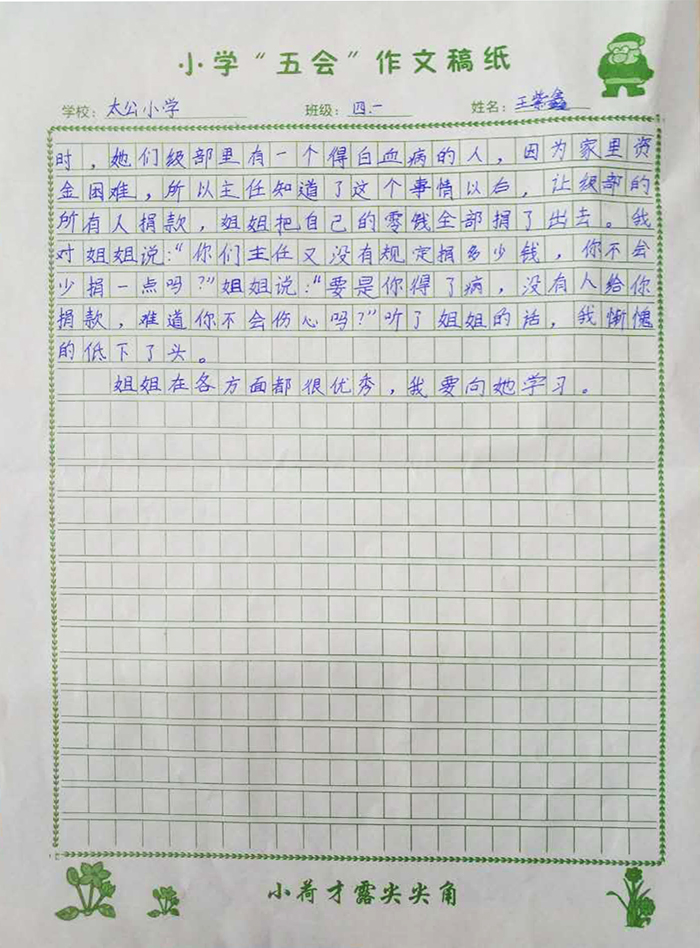 小学“五会”作文稿纸
学校：太公小学 班级：四.一 姓名：王紫鑫
时，她们级部里有一个得白血病的人，因为家里资
金困难，所以主任知道了这个事情以后，让级部的
所有人捐款，姐姐把自己的零钱全部捐了出去。我
对姐姐说：“你们主任又没有规定捐多少钱，你不会
少捐一点吗？”姐姐说：“要是你得了病，没有人给你
捐款，难道你不会伤心吗？”听了姐姐的话，我惭愧
的低下了头。
姐姐在各方面都很优秀，我要向她学习。
小荷才露尖尖角